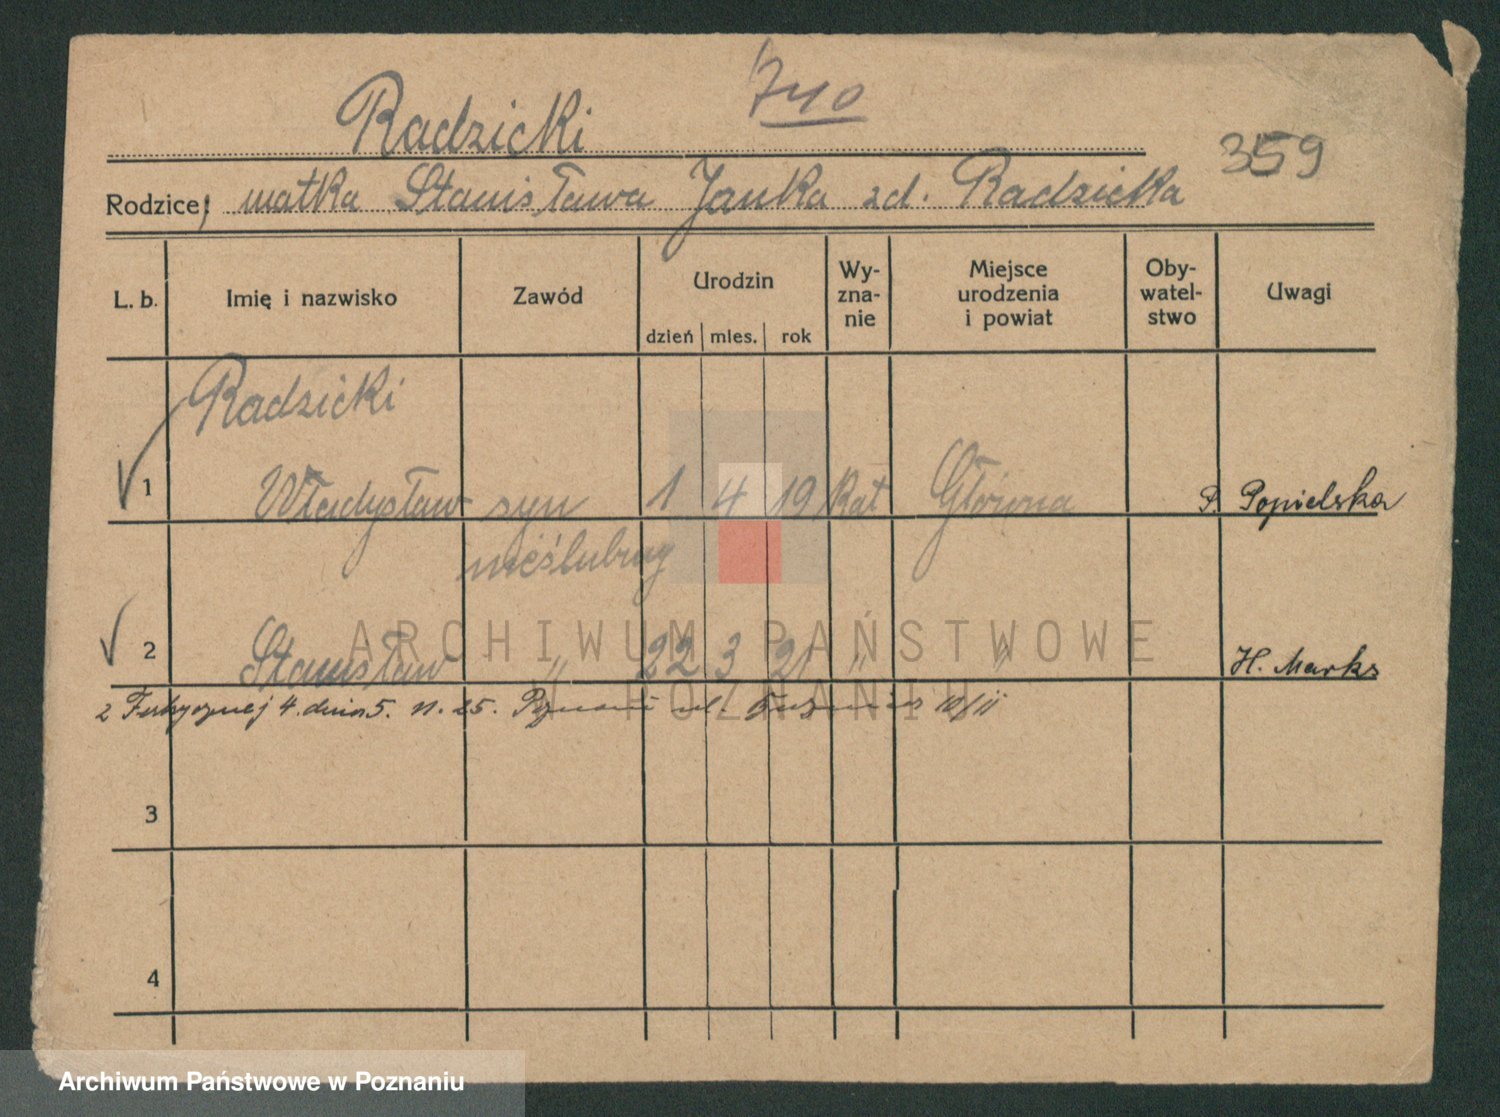 740
Radzicki
359
Rodzice; matka Stanisława Janka zd. Radzicka
L. b. Imię i nazwisko Zawód Urodzin Wy-zna-nie Miejsce urodzenia i powiat Oby-watel-stwo Uwagi
dzień mies. rok
Radzicki
1 Władysław syn 1 4 19 Kat Główna P. Popielska
nieślubny
2 Stanisław " 22 3 21 " " H. Marks
z 4. dnia 5. 11. 25. ul. 10/11
3
4
ARCHIWUM PAŃSTWOWE
W POZNANIU
Archiwum Państwowe w Poznaniu